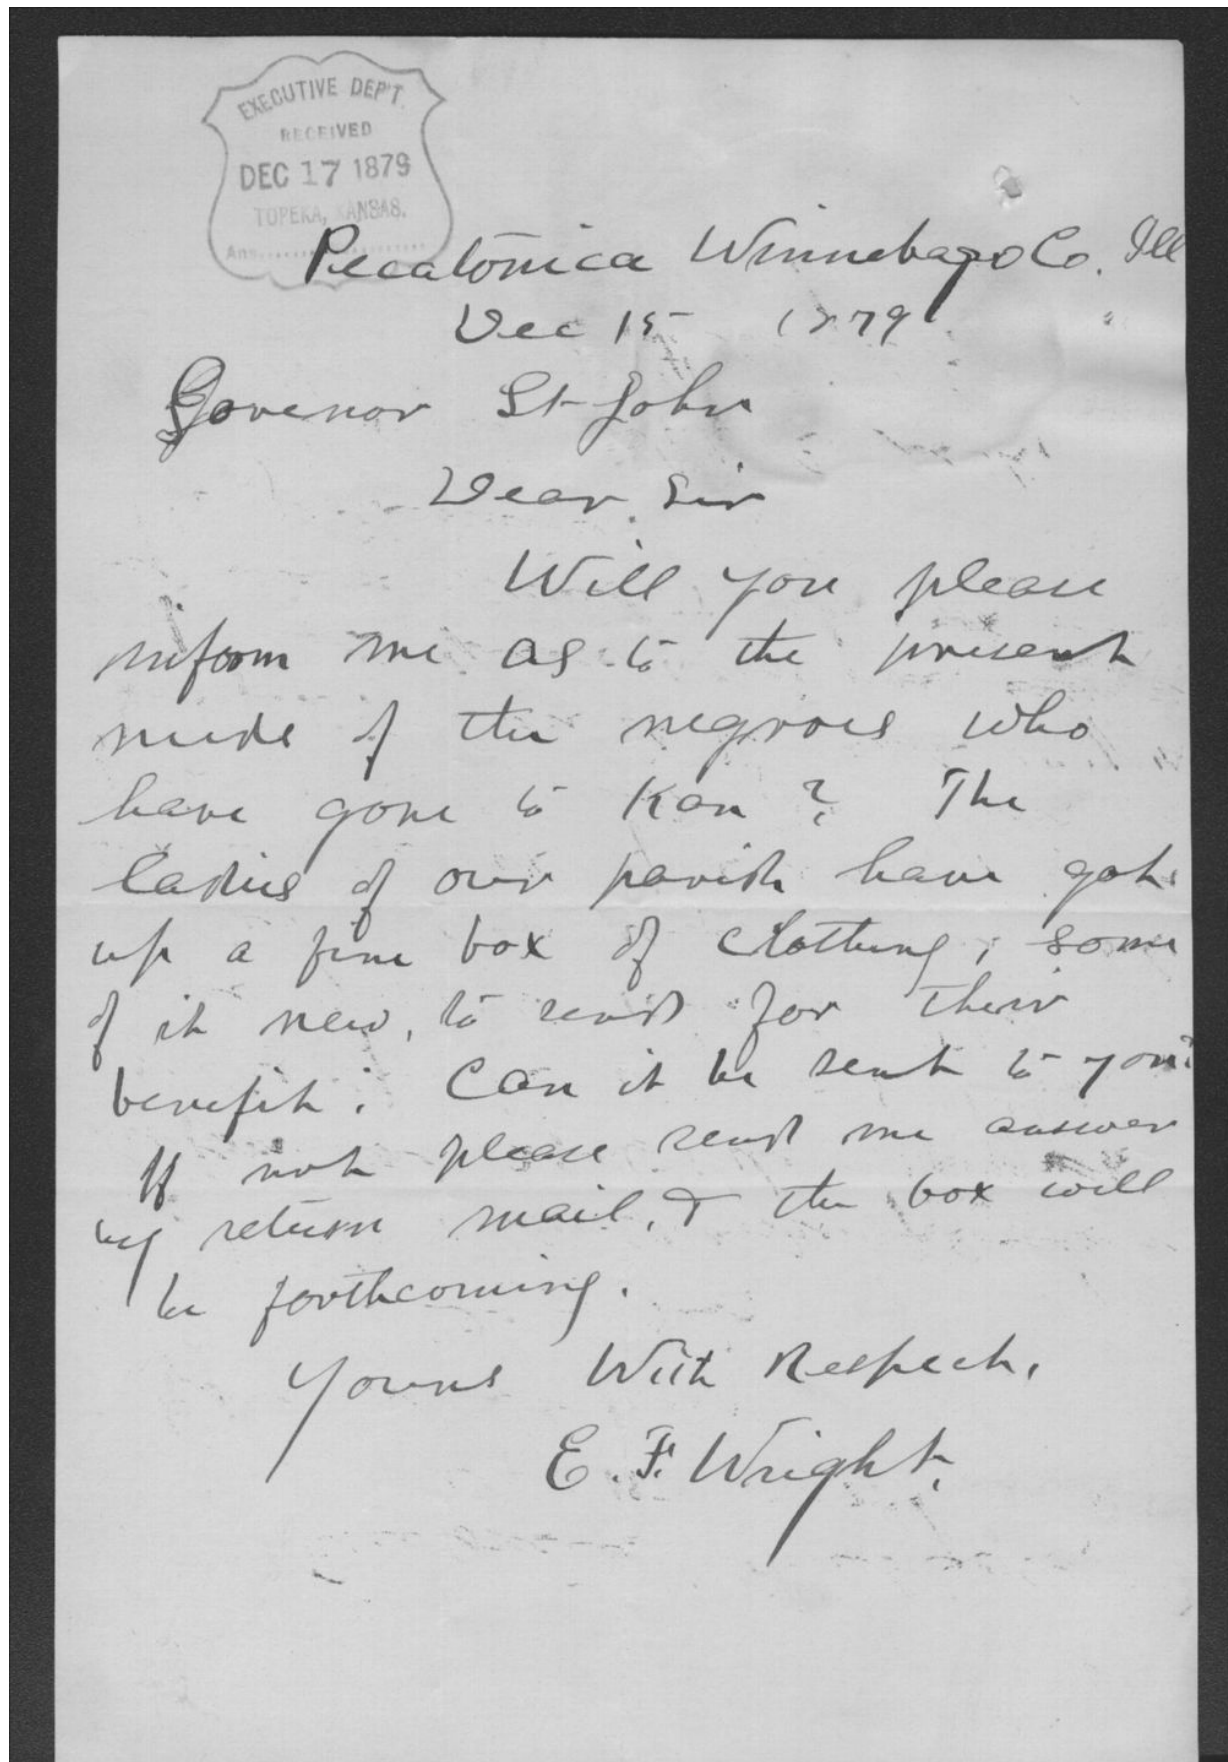 EXECUTIVE DEP'T.
RECEIVED
DEC 17 1879
TOPEKA, KANSAS.
Ans.
Pecatonica Winnebago Co. Ill
Dec 15 1879
Govenor St John
Dear Sir
Will you please
inform me as to the present
needs of the negroes who
have gone to Kan? The
ladies of our parish have got
up a fine box of clothing, some
of it new, to send for their
benefit. Can it be sent to you?
If not please send me answer
by return mail, & the box will
be forthcoming.
Yours With Respect,
E. F. Wright.